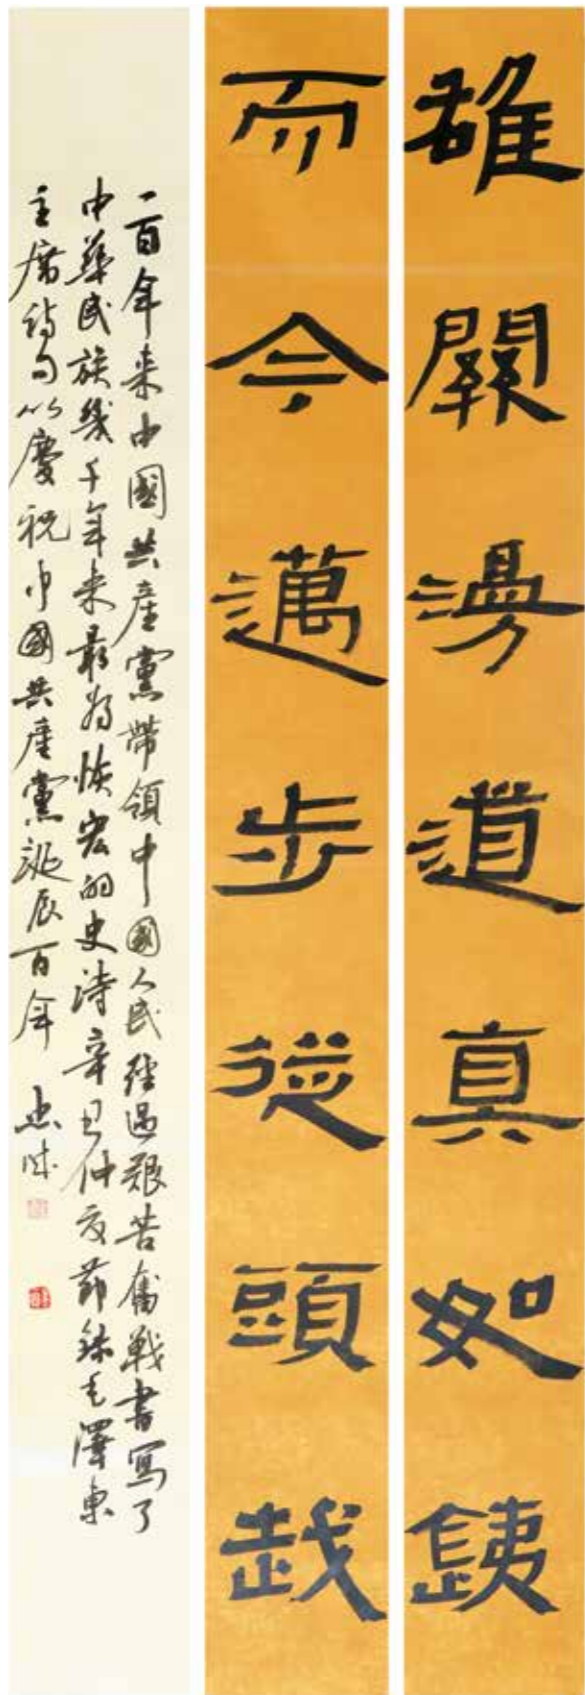 雄關漫道真如銕
而今邁步從頭越
一百年来中國共產黨帶領中國人民經過艱苦奮戰書寫了
中華民族幾千年来最為恢宏的史詩辛丑仲夏節錄毛澤東
主席詩句以慶祝中國共產黨誕辰百年